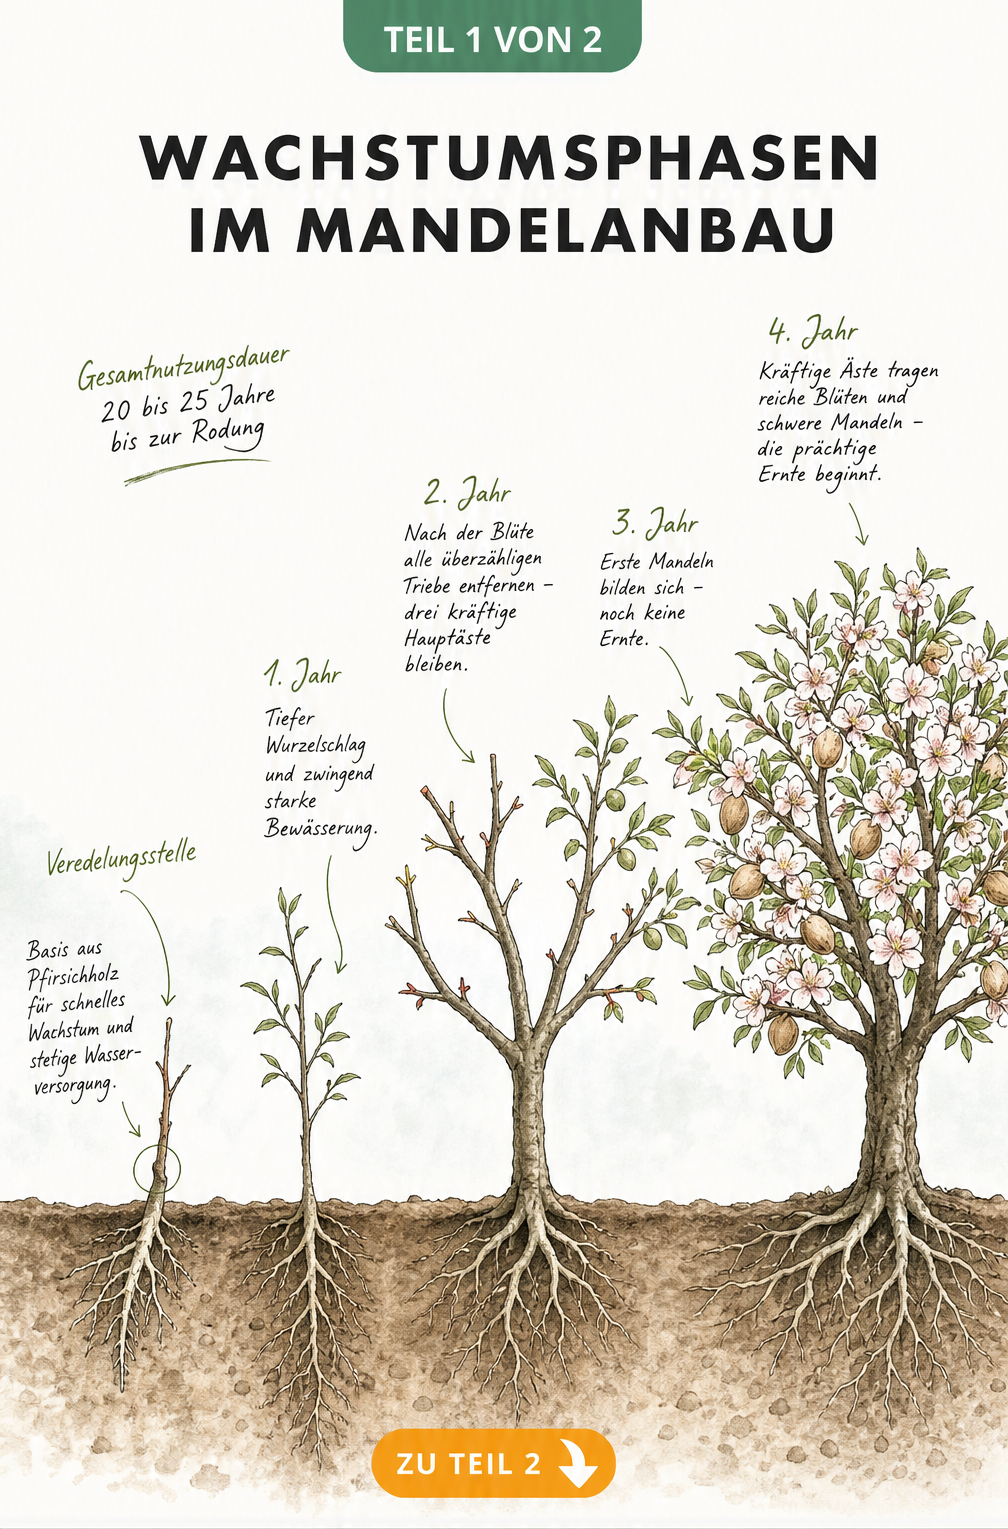 TEIL 1 VON 2
WACHSTUMSPHASEN
IM MANDELANBAU
Gesamtnutzungsdauer
20 bis 25 Jahre
bis zur Rodung
Veredelungsstelle
Basis aus
Pfirsichholz
für schnelles
Wachstum und
stetige Wasser-
versorgung.
1. Jahr
Tiefer
Wurzelschlag
und zwingend
starke
Bewässerung.
2. Jahr
Nach der Blüte
alle überzähligen
Triebe entfernen –
drei kräftige
Hauptäste
bleiben.
3. Jahr
Erste Mandeln
bilden sich –
noch keine
Ernte.
4. Jahr
Kräftige Äste tragen
reiche Blüten und
schwere Mandeln –
die prächtige
Ernte beginnt.
ZU TEIL 2